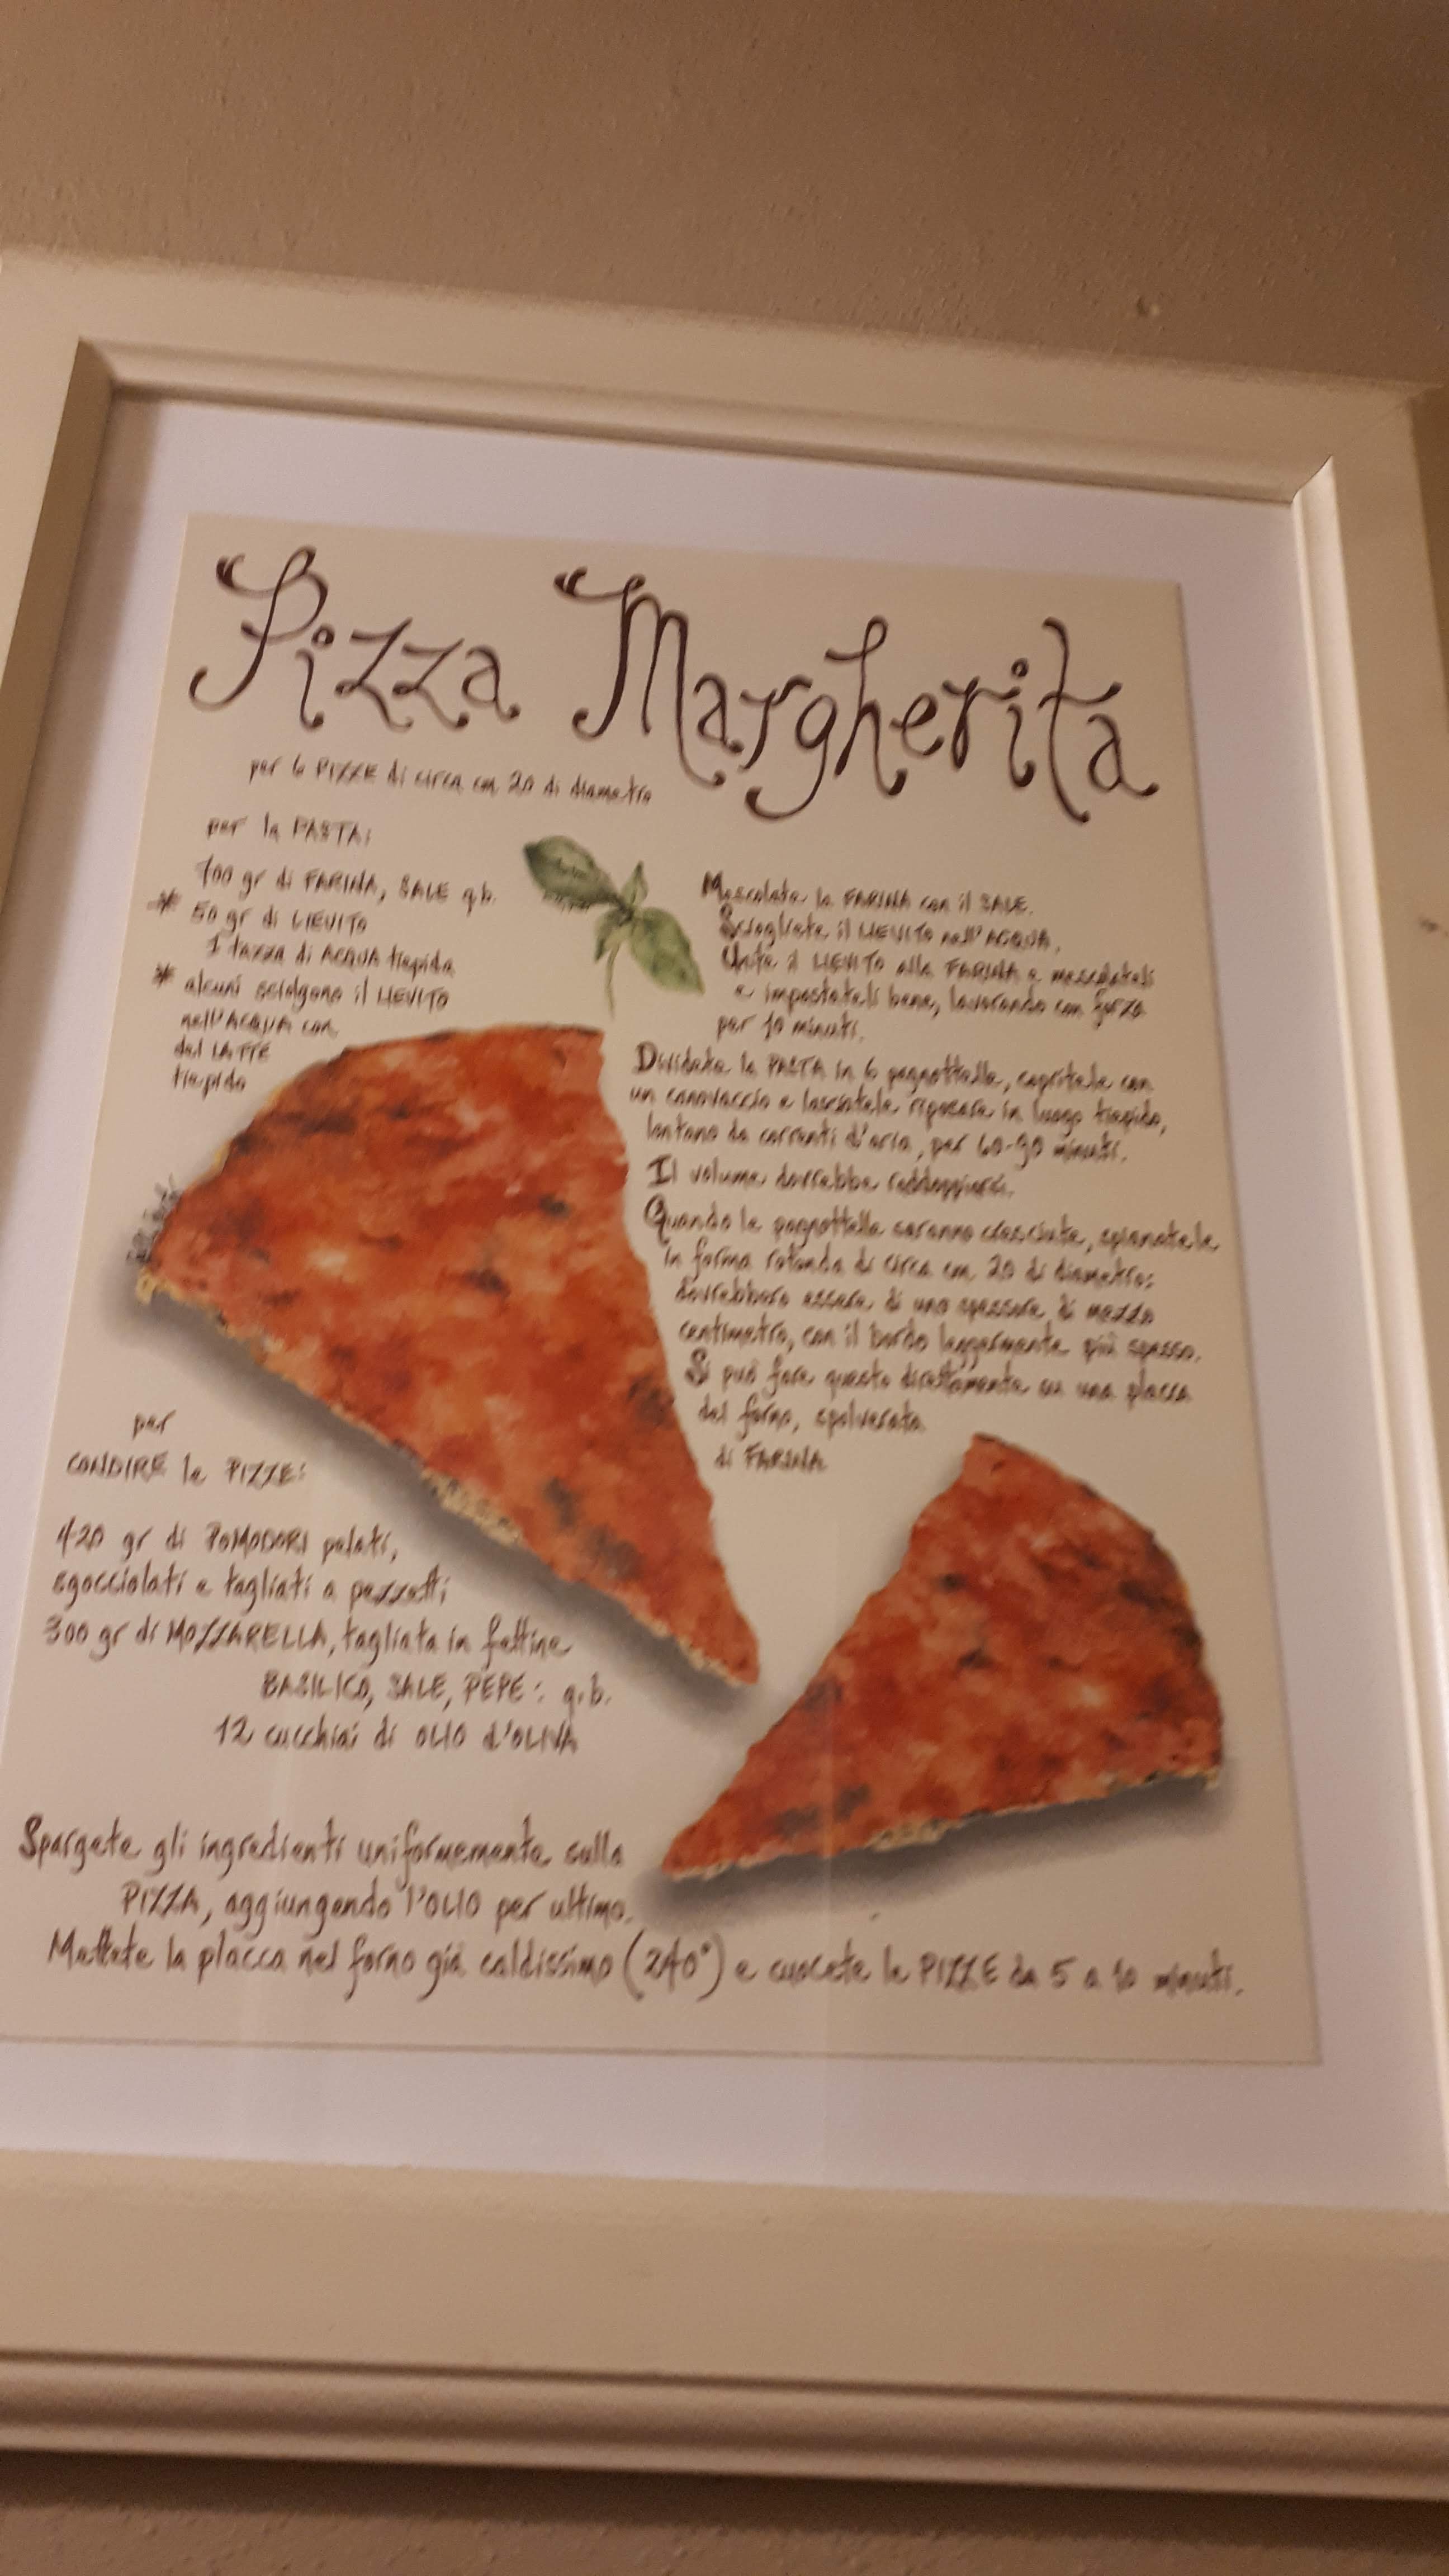 Pizza Margherita
per 6 PIZZE di circa cm 20 di diametro
per la PASTA:
700 gr di FARINA, SALE q.b.
* 50 gr di LIEVITO
1 tazza di ACQUA tiepida
* alcuni sciolgono il LIEVITO
nell'ACQUA con
del LATTE
tiepido
Mescolate la FARINA con il SALE.
Sciogliete il LIEVITO nell'ACQUA.
Unite il LIEVITO alla FARINA e mescolateli
e impastateli bene, lavorando con forza
per 10 minuti.
Dividete la PASTA in 6 pagnottelle, copritele con
un canovaccio e lasciatele riposare in luogo tiepido,
lontano da correnti d'aria, per 60-90 minuti.
Il volume dovrebbe raddoppiarsi.
Quando le pagnottelle saranno cresciute, spianatele
in forma rotonda di circa cm 20 di diametro:
dovrebbero essere di uno spessore di mezzo
centimetro, con il bordo leggermente più spesso.
Si può fare questo direttamente su una placca
del forno, spolverata
di FARINA
per
CONDIRE le PIZZE:
420 gr di POMODORI pelati,
sgocciolati e tagliati a pezzetti
300 gr di MOZZARELLA, tagliata in fettine
BASILICO, SALE, PEPE: q.b.
12 cucchiai di OLIO d'OLIVA
Spargete gli ingredienti uniformemente sulla
PIZZA, aggiungendo l'OLIO per ultimo.
Mettete la placca nel forno già caldissimo (240°) e cuocete le PIZZE da 5 a 10 minuti.